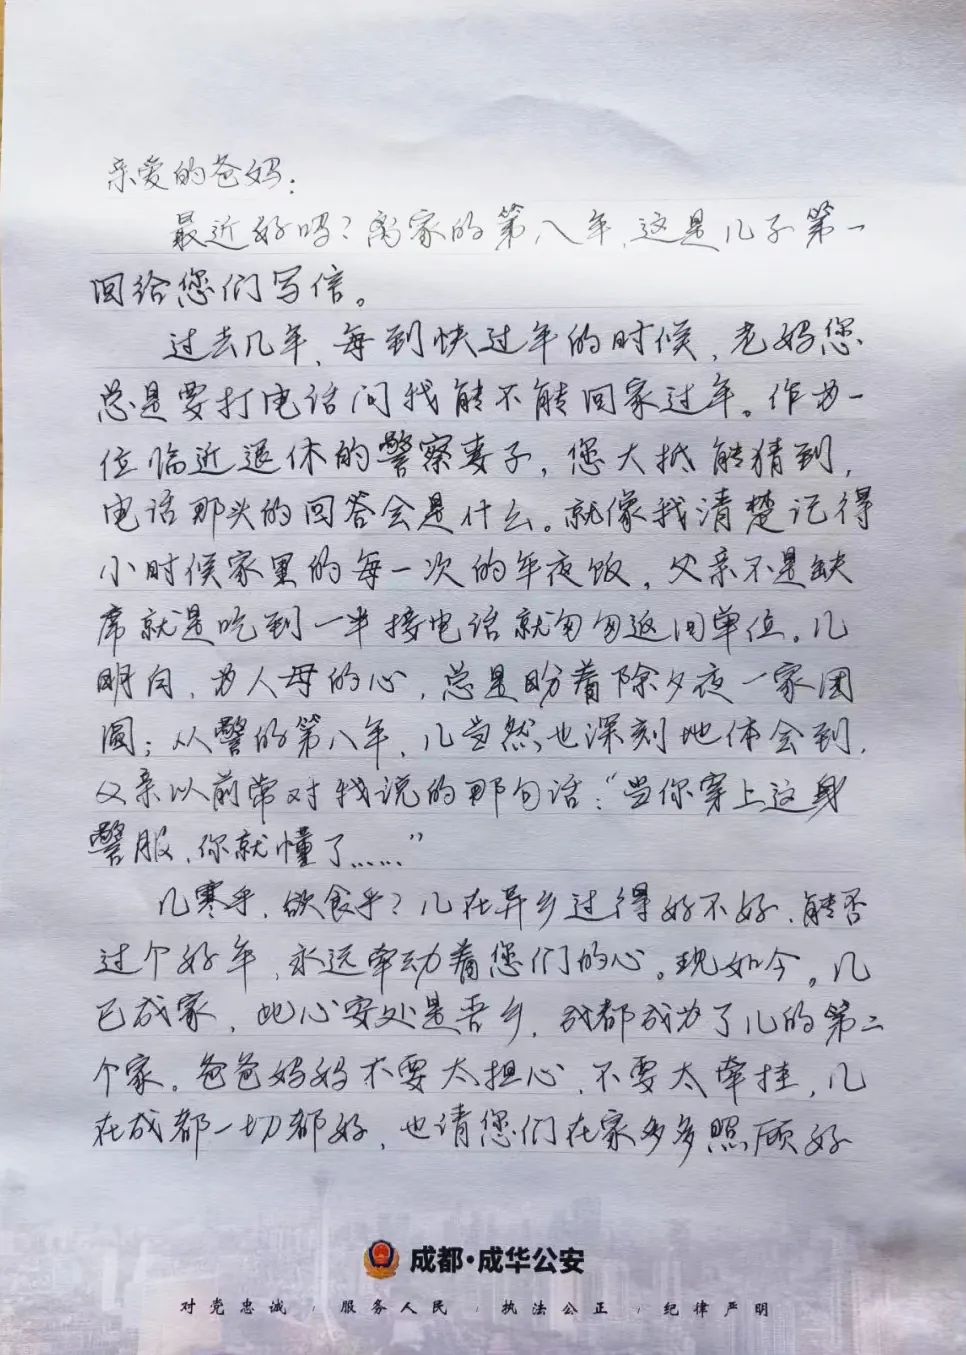 亲爱的爸妈：
最近好吗？离家的第八年，这是儿子第一
回给您们写信。
过去几年，每到快过年的时候，老妈您
总是要打电话问我能不能回家过年。作为一
位临近退休的警察妻子，您大抵能猜到，
电话那头的回答会是什么。就像我清楚记得
小时候家里的每一次的年夜饭，父亲不是缺
席就是吃到一半接电话就匆匆返回单位。儿
明白，为人母的心，总是盼着除夕夜一家团
圆；从警的第八年，儿当然也深刻地体会到，
父亲以前常对我说的那句话：“当你穿上这身
警服，你就懂了……”
儿寒乎，欲食乎？儿在异乡过得好不好，能否
过个好年，永远牵动着您们的心。现如今，儿
已成家，此心安处是吾乡，成都成为了儿的第二
个家。爸爸妈妈不要太担心，不要太牵挂，儿
在成都一切都好，也请您们在家多多照顾好
成都·成华公安
对党忠诚 / 服务人民 / 执法公正 / 纪律严明